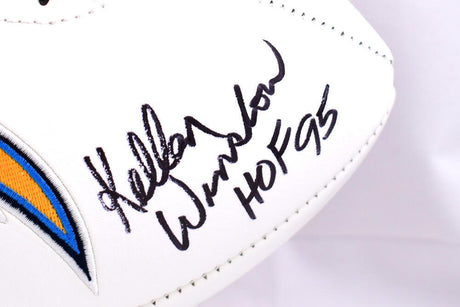 Kellen
Winslow
HOF 95